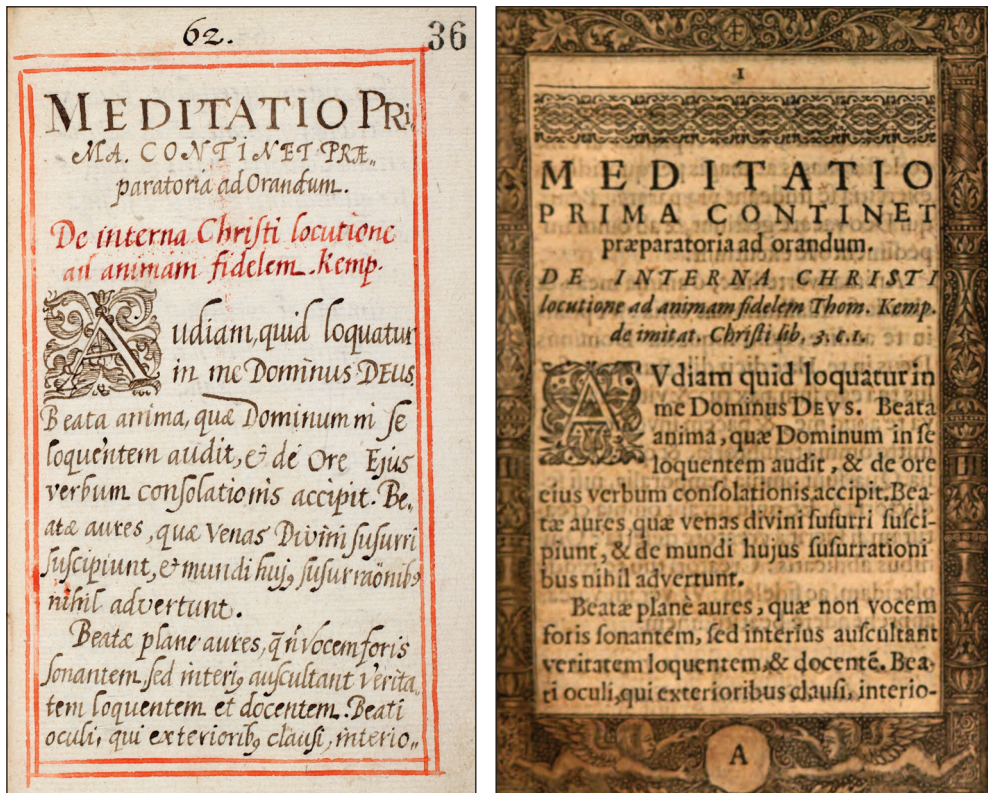 62.
36
MEDITATIO PRi,
MA. CONTINET PRÆ„
paratoria ad Orandum.
De interna Chriſti locutione
ad animam fidelem. Kemp.
Audiam, quid loquatur
in me Dominus DEUS.
Beata anima, quæ Dominum in ſe
loquentem audit, & de Ore Ejus
verbum conſolationis accipit. Be„
atæ aures, quæ Venas Divini ſuſurri
ſuſcipiunt, & mundi huj9 ſuſurraōnib9
nihil advertunt.
Beatæ plane aures, q̄ n̄ vocem foris
ſonantem, ſed interi9 auſcultant verita„
tem loquentem et docentem. Beati
oculi, qui exteriorib9 clauſi, interio„
1
MEDITATIO
PRIMA CONTINET
præparatoria ad orandum.
DE INTERNA CHRISTI
locutione ad animam fidelem Thom. Kemp.
de imitat. Chriſti lib. 3. c. 1.
AVdiam quid loquatur in
me Dominus DEVS. Beata
anima, quæ Dominum in ſe
loquentem audit, & de ore
eius verbum conſolationis accipit. Bea-
tæ aures, quæ venas divini ſuſurri ſuſci-
piunt, & de mundi hujus ſuſurrationi
bus nihil advertunt.
Beatæ plane aures, quæ non vocem
foris ſonantem, ſed interius auſcultant
veritatem loquentem, & docentē. Bea-
ti oculi, qui exterioribus clauſi, interio-
A